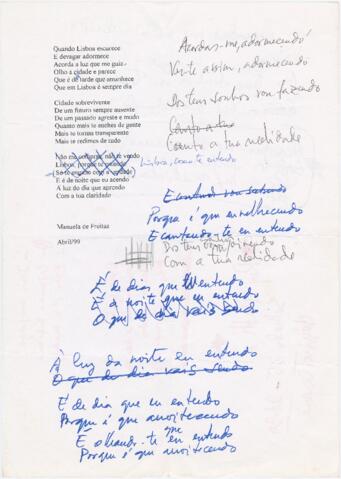 Quando Lisboa escurece
E devagar adormece
Acorda a luz que me guia
Olho a cidade e parece
Que é de tarde que amanhece
Que em Lisboa é sempre dia
Cidade sobrevivente
De um futuro sempre ausente
De um passado agreste e mudo
Quanto mais te enches de gente
Mais te tornas transparente
Mais te redimes de tudo
Acordas-me, adormecendo
Vou-te assim, adormecendo
Dos teus sonhos vou fazendo
Canto a tua
Com a tua realidade
Lisboa, como te entendo
Não me
Lisboa, porque te
E é de noite que eu acendo
A luz do dia que aprendo
Com a tua claridade
Manuela de Freitas
Abril/99
E cantando vou
Porque é que envelhecendo
E cantando-te eu entendo
Dos teus
Com a tua realidade
É de dia que entendo
É à noite que eu entendo
O que de dia vais sendo
À luz da noite eu entendo
O que de dia vais sendo
É de dia que eu entendo
Porque é que anoitecendo
É olhando-te que eu entendo
Porque é que anoitecendo